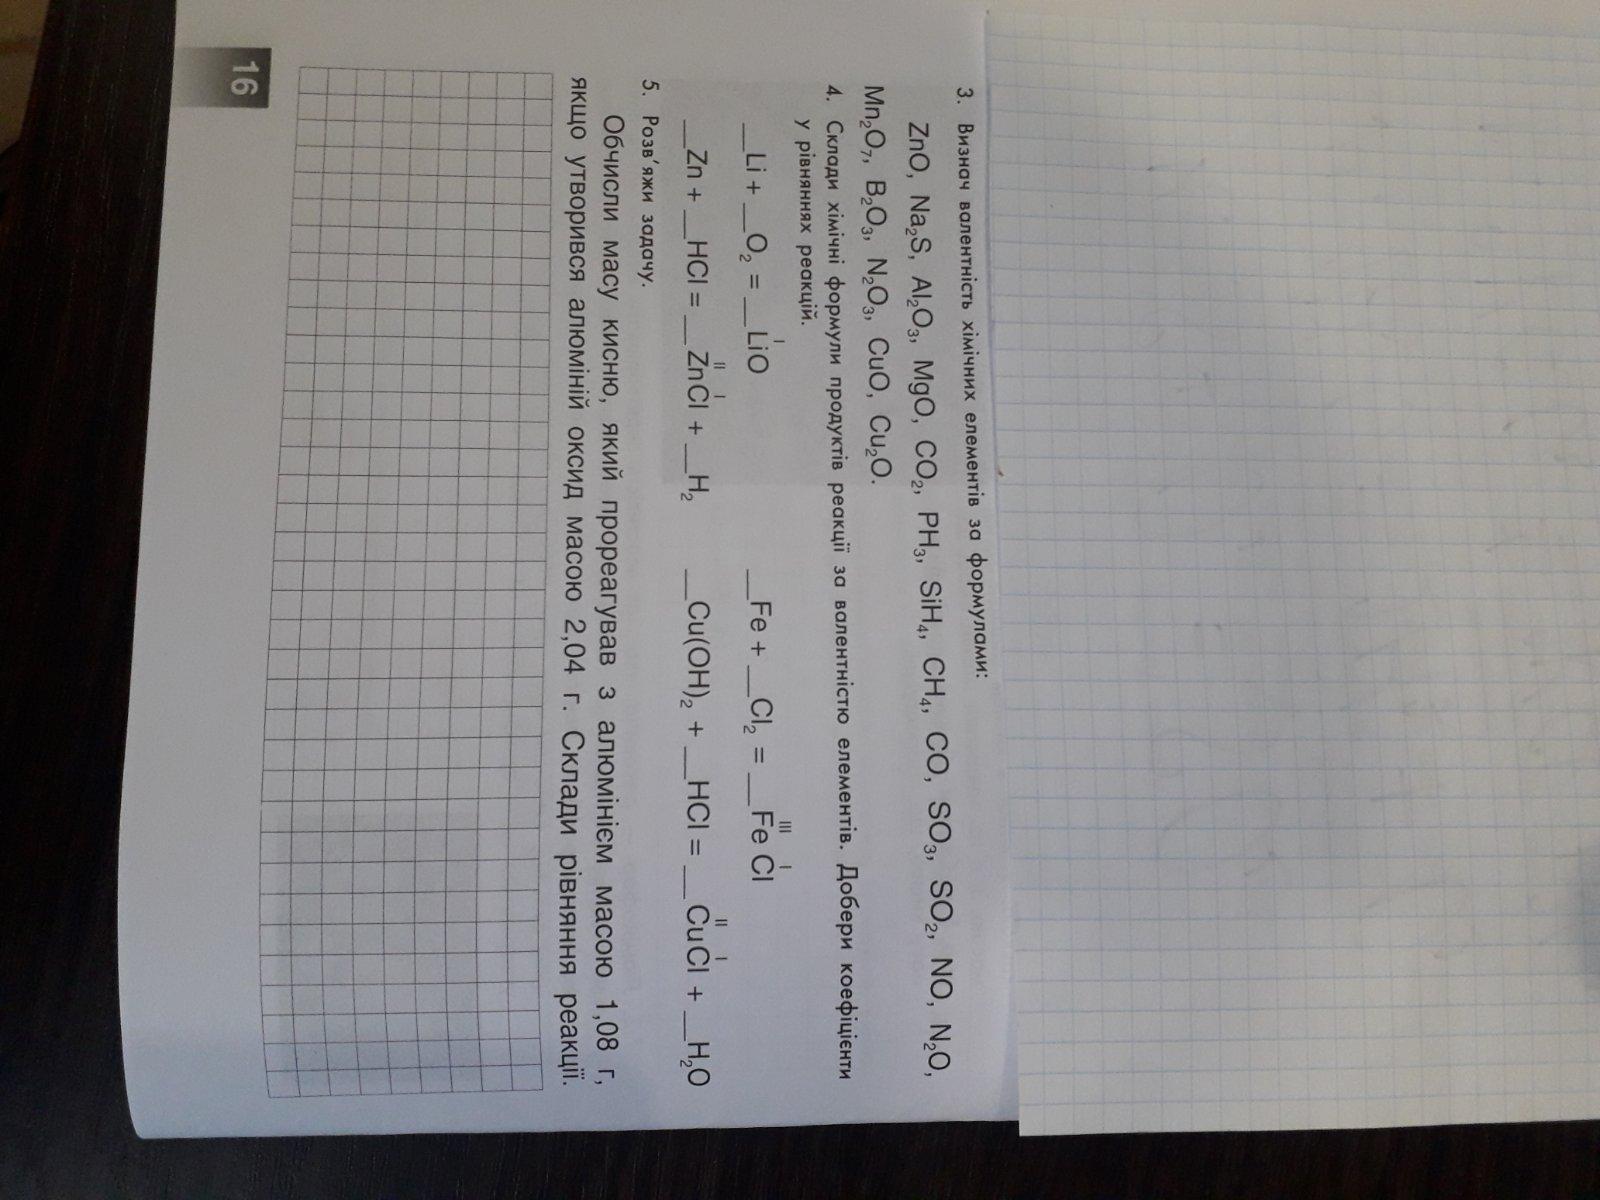 3. Визнач валентність хімічних елементів за формулами:
ZnO, Na₂S, Al₂O₃, MgO, CO₂, PH₃, SiH₄, CH₄, CO, SO₃, SO₂, NO, N₂O,
Mn₂O₇, B₂O₃, N₂O₃, CuO, Cu₂O.
4. Склади хімічні формули продуктів реакції за валентністю елементів. Добери коефіцієнти
у рівняннях реакцій.
I III I
__Li + __O₂ = __LiO __Fe + __Cl₂ = __Fe Cl
II I II I
__Zn + __HCl = __ZnCl + __H₂ __Cu(OH)₂ + __HCl = __CuCl + __H₂O
5. Розв'яжи задачу.
Обчисли масу кисню, який прореагував з алюмінієм масою 1,08 г,
якщо утворився алюміній оксид масою 2,04 г. Склади рівняння реакції.
16